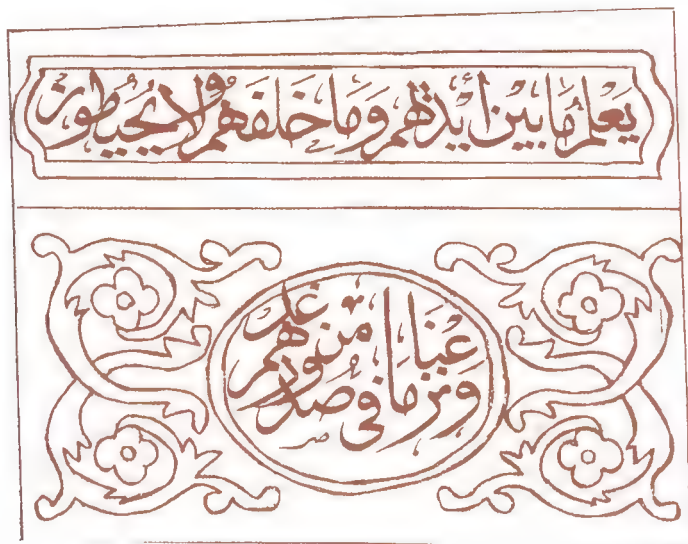 يعلم ما بين أيديهم وما خلفهم ولا يحيطون
ونزعنا ما في صدورهم من غل